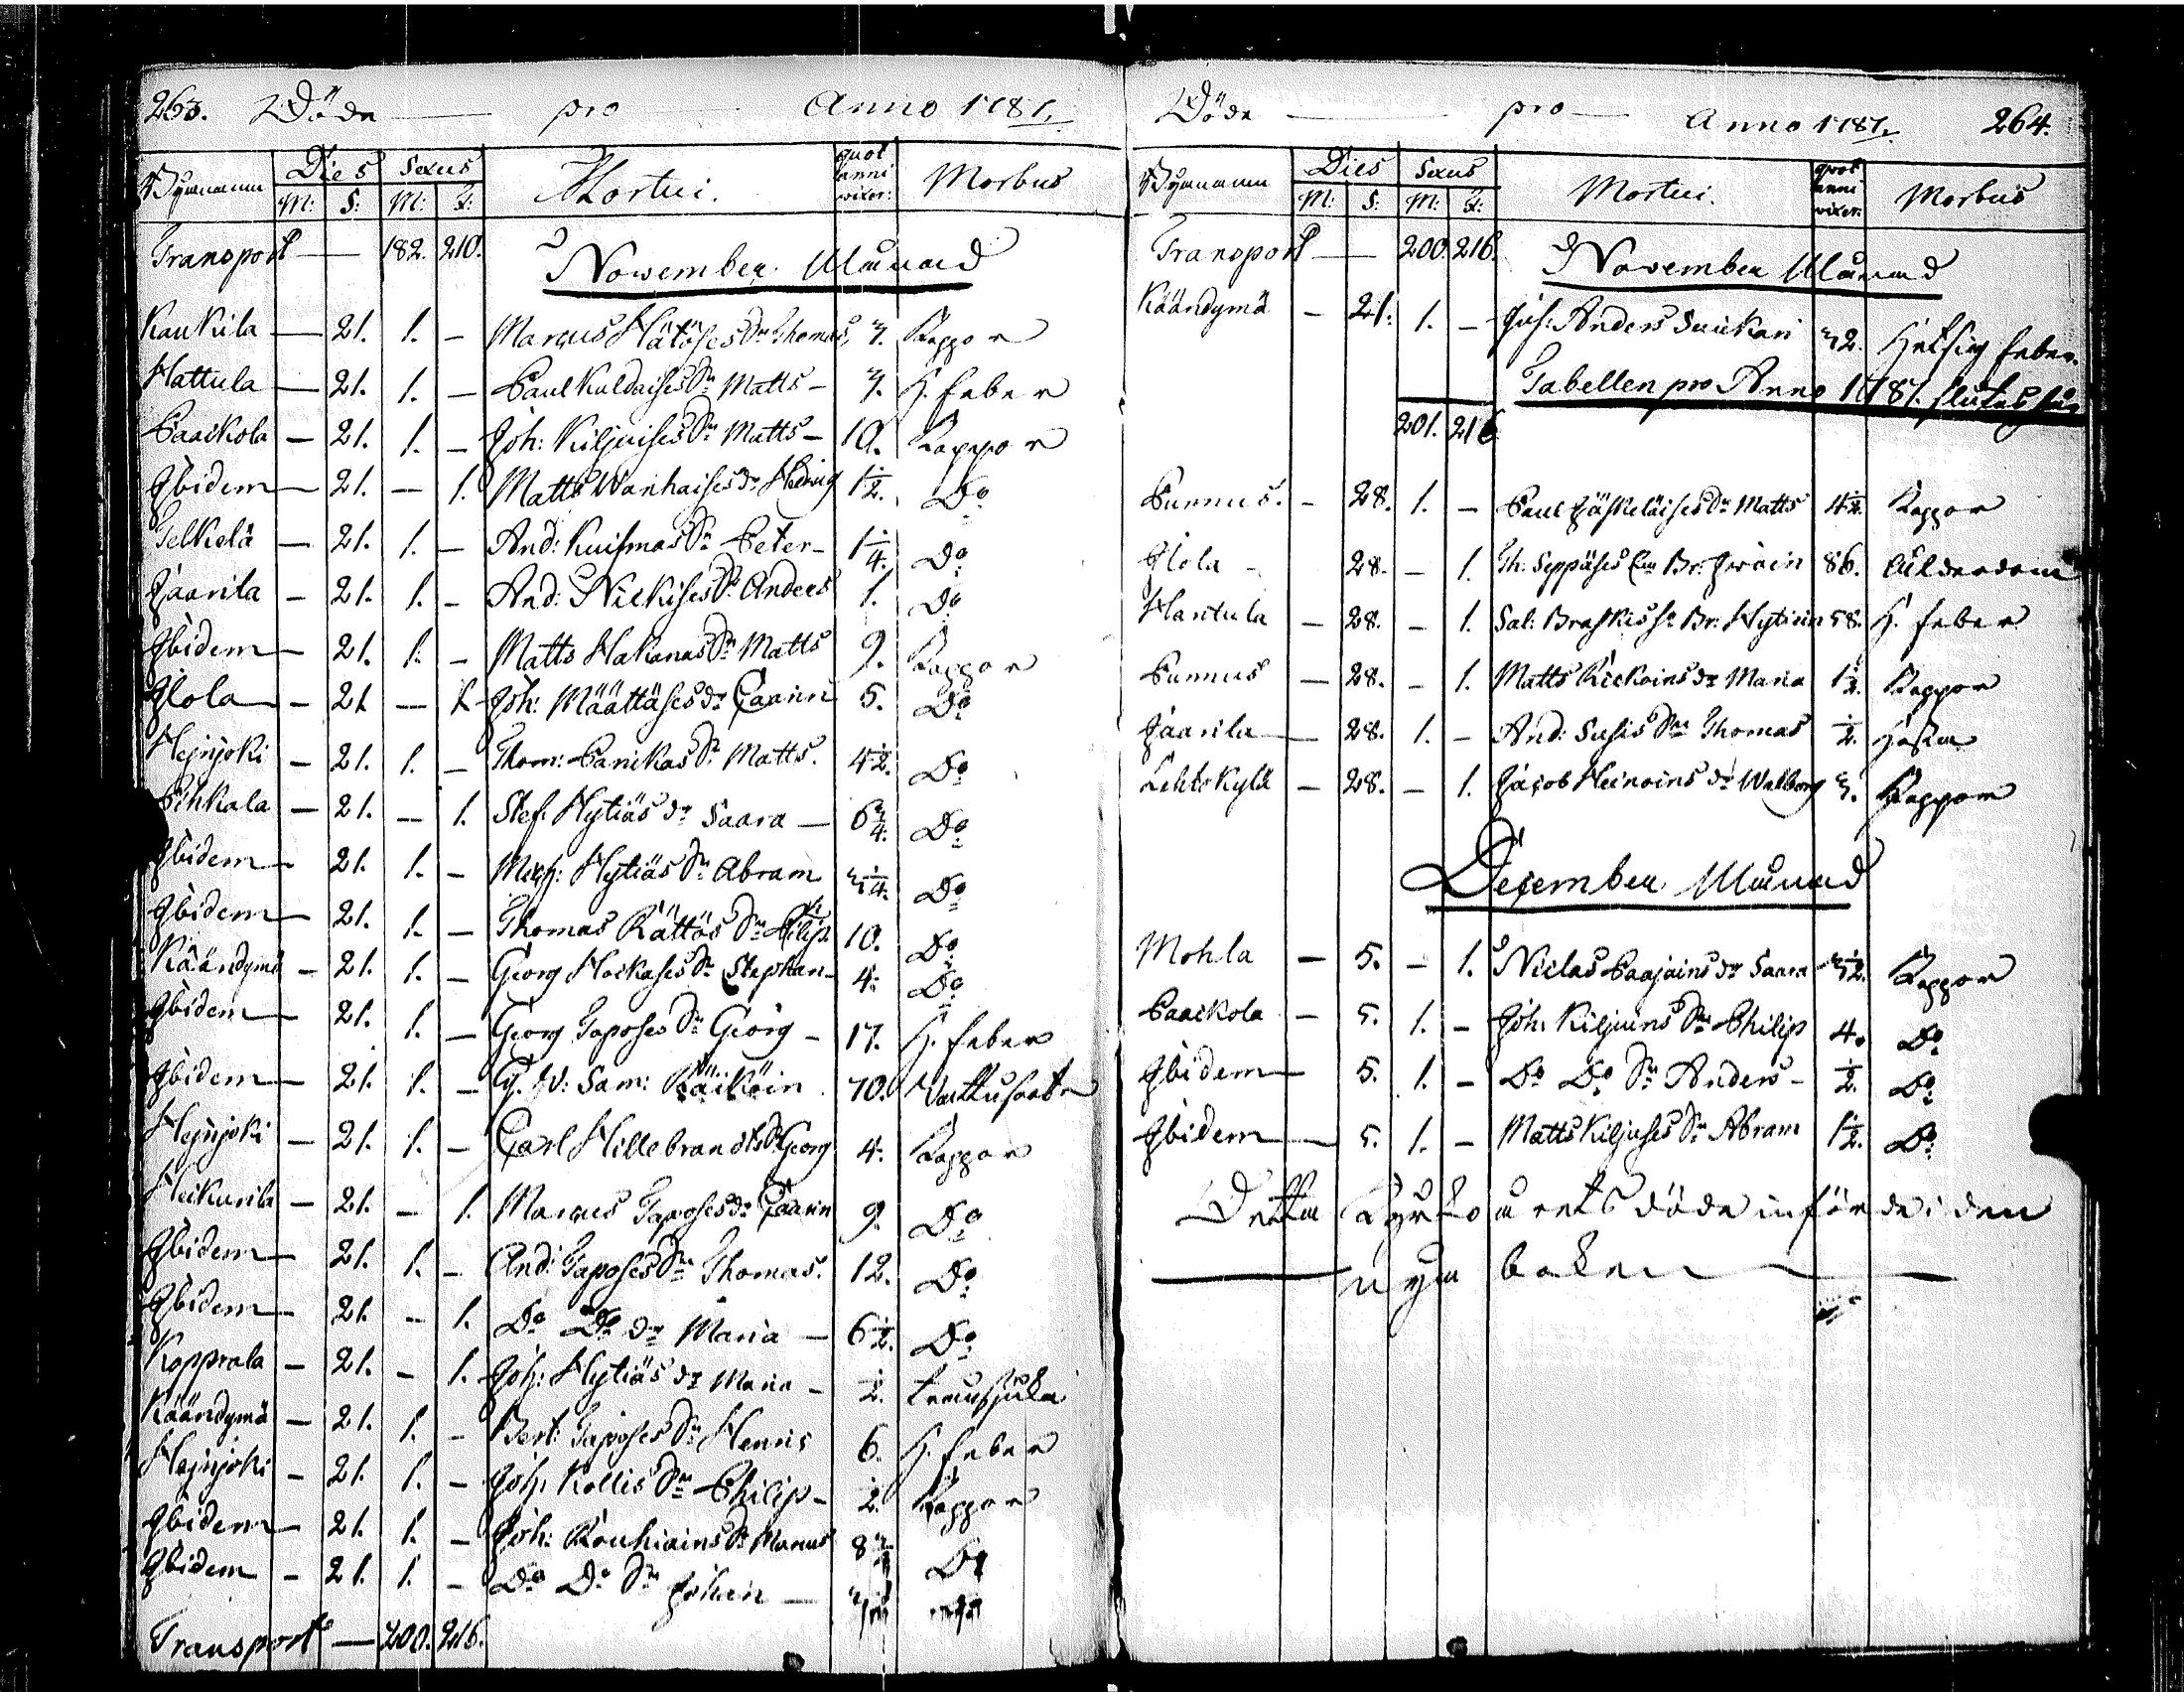 263. Döde — pro — Anno 1781.
Pymanum Dies Sexus Mortui. quot anni vixer: Morbus
M: S: M: F:
Transport — 182. 210. November Månad
Kaukila — 21. 1. — Marcus Hätöses Sn Thomas, 3. Koppor
Hattula — 21. 1. — Paul Kuldaises Sn Matts — 3. H. feber
Paaikola — 21. 1. — Joh: Kiljuises Sn Matts — 10. Koppor
Ibidem — 21. — 1. Matts Wanhaises dr Hedvig 1 1/2. Do
Telkelä — 21. 1. — And: Kuismas Sn Peter — 1/4. Do
Jaarila — 21. 1. — And: Nickises Sn Anders 1. Do
Ibidem — 21. 1. — Matts Hakanas Sn Matts 9. Koppor
Ilola — 21. — 1. Joh: Määttäses dr Caarin 5. Do
Hejnjoki — 21. 1. — Thom: Panikas Sn Matts. 4 1/2. Do
Pihkala — 21. — 1. Stef. Hytiäs dr Saara — 6 3/4. Do
Ibidem — 21. 1. — Mich: Hytiäs Sn Abram 3 1/4. Do
Ibidem — 21. 1. — Thomas Rättös Sn Philip 10. Do
Käändymä — 21. 1. — Georg Hockases Sn Stephan — 4. Do
Ibidem — 21. 1. — Georg Taposes Sn Georg — 17. H. feber
Ibidem — 21. 1. — G. W: Sam: Räiköin 70. Vattusoot
Hejnjoki — 21. 1. — Carl Hillebrandts Sn Georg 4. Koppor
Heikurila — 21. — 1. Marcus Taposes dr Caarin 9. Do
Ibidem — 21. 1. — And: Taposes Sn Thomas. 12. Do
Ibidem — 21. — 1. Do Do dr Maria — 6 1/2. Do
Kopprala — 21. — 1. Joh: Hytiäs dr Maria — 1/2.
Käändymä — 21. 1. — Bert: Taposes Sn Henric 6. H. feber
Hejnjoki — 21. 1. — Joh: Kollis Sn Philip — 1/2. Koppor
Ibidem — 21. 1. — Joh: Rouhiains Sn Marcus 8 Do
Ibidem — 21. 1. — Do Do Sn Johan —
Transport — 200. 216.
Döde — pro — Anno 1781. 264.
Pymanum Dies Sexus Mortui. quot anni vixer: Morbus
M: S: M: F:
Transport — 200. 216. November Månad
Käändymä — 21. 1. — Inh: Anders Suikari 32. Hetsig feber.
Tabellen pro Anno 1781. slutas här
201. 216
Punnus. — 28. 1. — Paul Jäskeläises Sn Matts 4 1/2. Koppor
Ilola — 28. — 1. Th. Seppäses Enk. Br: Jwäin 86. Ålderdom
Hantula — 28. — 1. Sal: Braskis h. Br: Hytiäin 58. H. feber
Punnus — 28. — 1. Matts Kickoins dr Maria 1 1/2. Koppor
Jaarila — 28. 1. — And: Susis Sn Thomas 1/2. Hosta
Lehtokylä — 28. — 1. Jacob Heinoins dr Walborg 3. Koppor
December Månad
Mohla — 5. — 1. Niclas Paajains dr Saara 3 1/2. Koppor
Paaikola — 5. 1. — Joh: Kiljuins Sn Philip 4. Do
Ibidem — 5. 1. — Do Do Sn Anders — 1/2. Do
Ibidem — 5. 1. — Matts Kiljuses Sn Abram 1 1/2. Do
Detta Kyrkoårets döde införde i den
— nya boken —